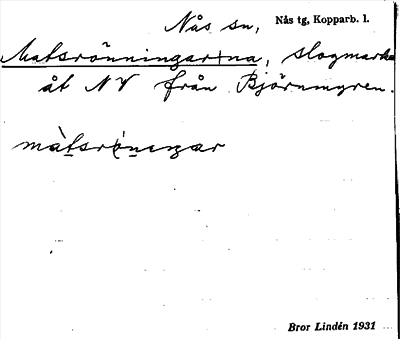 Nås sn, Nås tg, Kopparb. l.
Matsrönningar\na, slogmarka
åt NV från Björnmyren.
màtsrö́nıŋar
Bror Lindén 1931